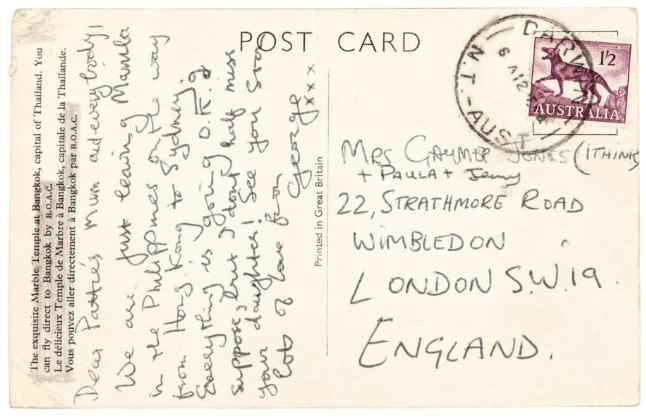 POST CARD
The exquisite Marble Temple at Bangkok, capital of Thailand. You
can fly direct to Bangkok by B.O.A.C.
Le délicieux Temple de Marbre à Bangkok, capitale de la Thailande.
Vous pouvez aller directement à Bangkok par B.O.A.C.
Dear Pattie's Mum and everybody,
We are just leaving Manila
in the Philippines on the way
from Hong Kong to Sydney.
Everything is going O.K. I
suppose, but I don't half miss
your daughter! See you soon
lots of love from
George
xxx
Printed in Great Britain
DARWIN
6 A12
N.T.-AUST
1/2
AUSTRALIA
MRS JONES (I THINK)
+ PAULA + Jenny
22, STRATHMORE ROAD
WIMBLEDON
LONDON S.W.19.
ENGLAND.